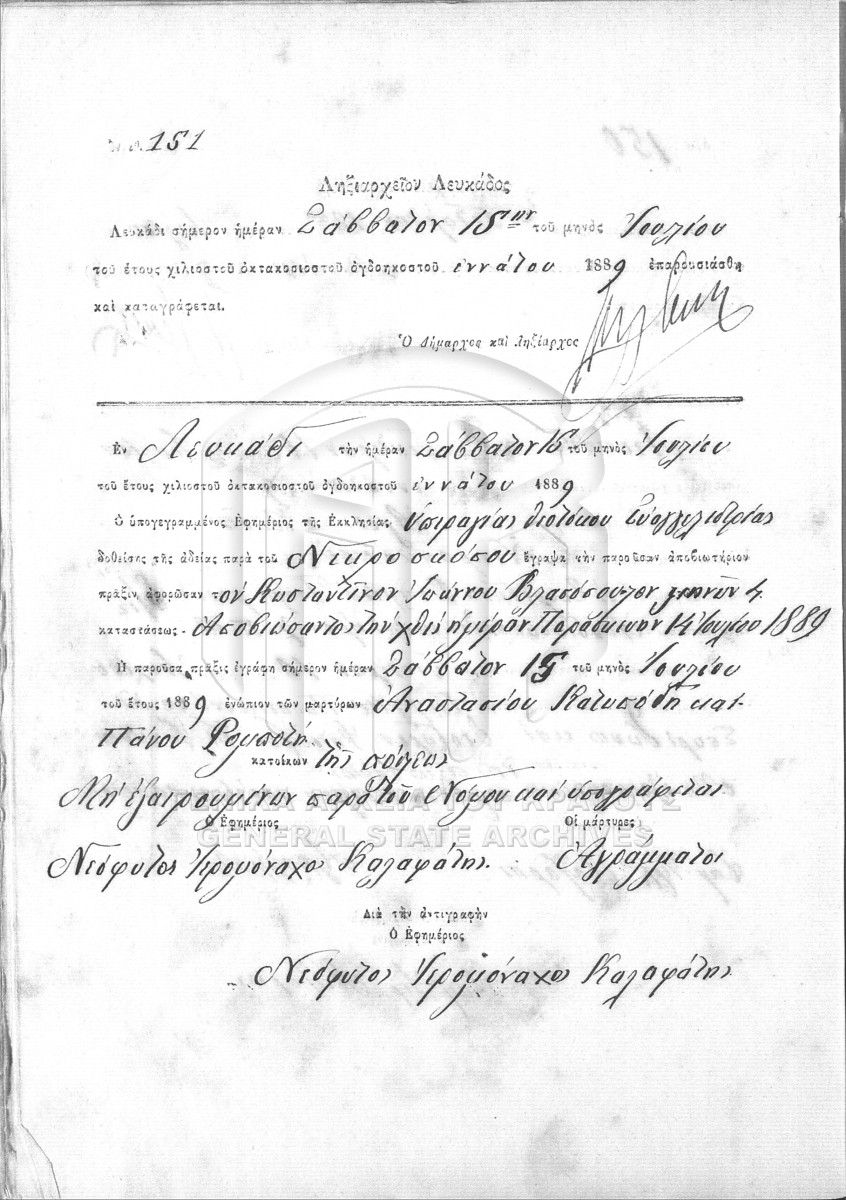 151
Ληξιαρχεῖον Λευκάδος
Λευκάδι σήμερον ἡμέραν Σάββατον 15ην τοῦ μηνὸς Ἰουλίου
τοῦ ἔτους χιλιοστοῦ ὀκτακοσιοστοῦ ὀγδοηκοστοῦ ἐννάτου 1889 ἐπαρουσιάσθη
καὶ καταγράφεται.
Ὁ Δήμαρχος καὶ Ληξίαρχος
Ἐν Λευκάδι τὴν ἡμέραν Σάββατον 15 τοῦ μηνὸς Ἰουλίου
τοῦ ἔτους χιλιοστοῦ ὀκτακοσιοστοῦ ὀγδοηκοστοῦ ἐννάτου 1889
Ὁ ὑπογεγραμμένος Ἐφημέριος τῆς Ἐκκλησίας Ὑπεραγίας Θεοτόκου Εὐαγγελιστρίας
δοθείσης τῆς ἀδείας παρὰ τοῦ Νεκροσκόπου ἔγραψα τὴν παροῦσαν ἀποβιωτήριον
πρᾶξιν ἀφορῶσαν τὸν Κωσταντῖνον Ἰωάννου Βλασόπουλον μηνῶν 4
καταστάσεως Ἀποβιώσαντος τὴν χθὲς ἡμέραν Παρασκευὴν 14 Ἰουλίου 1889
Ἡ παροῦσα πρᾶξις ἐγράφη σήμερον ἡμέραν Σάββατον 15 τοῦ μηνὸς Ἰουλίου
τοῦ ἔτους 1889 ἐνώπιον τῶν μαρτύρων Ἀναστασίου Κατωπόδη καὶ
Πάνου Ρομποτῆ
κατοίκων τῆς πόλεως
Μὴ ἐξαιρουμένων παρὰ τοῦ Νόμου καὶ ὑπογράφεται
ΓΕΝΙΚΑ ΑΡΧΕΙΑ ΤΟΥ ΚΡΑΤΟΥΣ
Ὁ Ἐφημέριος Οἱ μάρτυρες
GENERAL STATE ARCHIVES
Νεόφυτος Ἱερομόναχος Καλαφάτης Ἀγράμματοι
Διὰ τὴν ἀντιγραφὴν
Ὁ Ἐφημέριος
Νεόφυτος Ἱερομόναχος Καλαφάτης